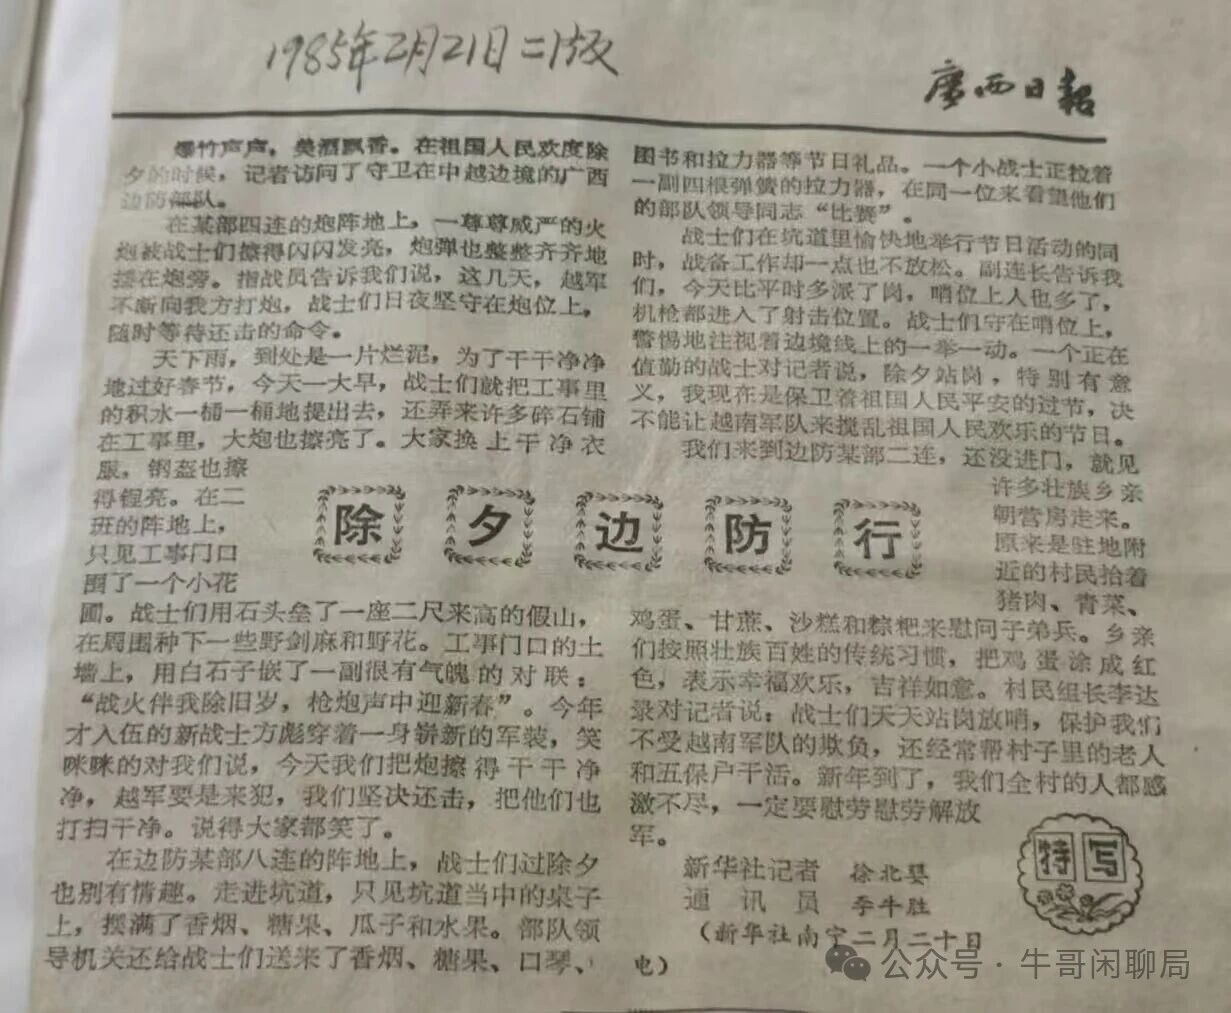 1985年2月21日二版
广西日报
除夕边防行
爆竹声声，美酒飘香。在祖国人民欢度除
夕的时候，记者访问了守卫在中越边境的广西
边防部队。
在某部四连的炮阵地上，一尊尊威严的火
炮被战士们擦得闪闪发亮，炮弹也整整齐齐地
摆在炮旁。指战员告诉我们说，这几天，越军
不断向我方打炮，战士们日夜坚守在炮位上，
随时等待还击的命令。
天下雨，到处是一片烂泥，为了干干净净
地过好春节，今天一大早，战士们就把工事里
的积水一桶一桶地提出去，还弄来许多碎石铺
在工事里，大炮也擦亮了。大家换上干净衣
服，钢盔也擦
得锃亮。在二
班的阵地上，
只见工事门口
围了一个小花
圃。战士们用石头垒了一座二尺来高的假山，
在周围种下一些野剑麻和野花。工事门口的土
墙上，用白石子嵌了一副很有气魄的对联：
“战火伴我除旧岁，枪炮声中迎新春”。今年
才入伍的新战士方彪穿着一身崭新的军装，笑
咪咪的对我们说，今天我们把炮擦得干干净
净，越军要是来犯，我们坚决还击，把他们也
打扫干净。说得大家都笑了。
在边防某部八连的阵地上，战士们过除夕
也别有情趣。走进坑道，只见坑道当中的桌子
上，摆满了香烟、糖果、瓜子和水果。部队领
导机关还给战士们送来了香烟、糖果、口琴、
图书和拉力器等节日礼品。一个小战士正拉着
一副四根弹簧的拉力器，在同一位来看望他们
的部队领导同志“比赛”。
战士们在坑道里愉快地举行节日活动的同
时，战备工作却一点也不放松。副连长告诉我
们，今天比平时多派了岗，哨位上人也多了，
机枪都进入了射击位置。战士们守在哨位上，
警惕地注视着边境线上的一举一动。一个正在
值勤的战士对记者说，除夕站岗，特别有意
义，我现在是保卫着祖国人民平安的过节，决
不能让越南军队来搅乱祖国人民欢乐的节日。
我们来到边防某部二连，还没进门，就见
许多壮族乡亲
朝营房走来。
原来是驻地附
近的村民抬着
猪肉、青菜、
鸡蛋、甘蔗、沙糕和粽粑来慰问子弟兵。乡亲
们按照壮族百姓的传统习惯，把鸡蛋涂成红
色，表示幸福欢乐，吉祥如意。村民组长李达
录对记者说：战士们天天站岗放哨，保护我们
不受越南军队的欺负，还经常帮村子里的老人
和五保户干活。新年到了，我们全村的人都感
激不尽，一定要慰劳慰劳解放
军。
新华社记者 徐北
通讯员 李牛胜
（新华社南宁二月二十日
电）
特写
公众号·牛哥闲聊局